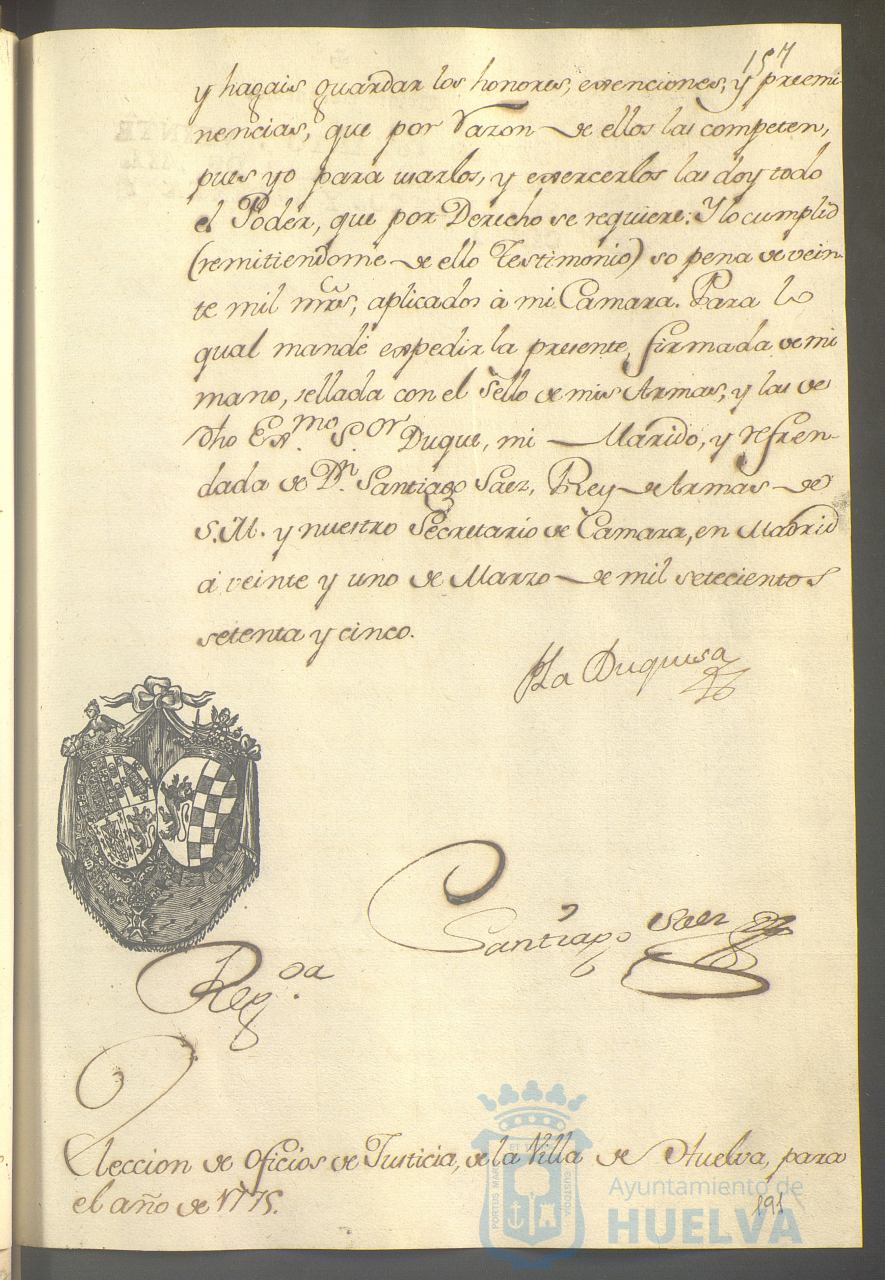 157
y hagais guardar los honores, exenciones, y preemi-
nencias, que por razon de ellos las competen,
pues yo para usarlos, y exercerlos las doy todo
el Poder, que por Derecho se requiere: Y lo cumplid
(remitiendome de ello Testimonio) so pena de vein-
te mil mrs, aplicados à mi Camara. Para lo
qual mandé expedir la presente, firmada de mi
mano, sellada con el Sello de mis Armas, y las de
dho Exmo Sor Duque, mi Marido, y refren-
dada de Dn Santiago Saez, Rey de Armas de
S. M. y nuestro Secretario de Camara, en Madrid
à veinte y uno de Marzo de mil setecientos
setenta y cinco.
La Duquesa
Santiago Saez
Regda.
Eleccion de oficios de Justicia, de la Villa de Huelva, para
el año de 1775.
PORTUS MARIS
CUSTODIA
Ayuntamiento de
HUELVA
191